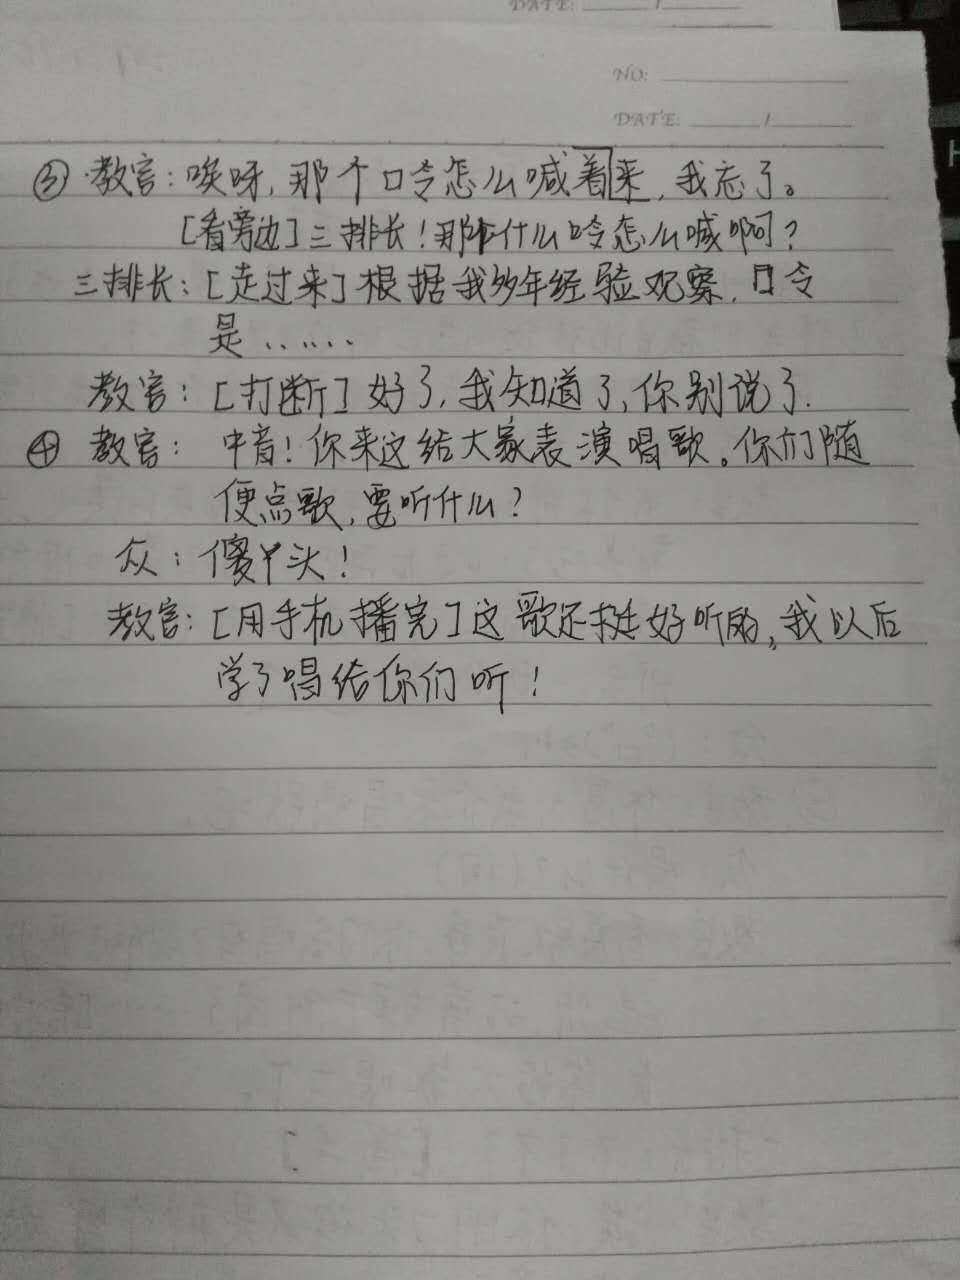 DATE: /
NO:
DATE: /
③ 教官：唉呀，那个口令怎么喊着来，我忘了。
[看旁边]三排长！那什么口令怎么喊啊？
三排长：[走过来]根据我多年经验观察，口令
是……
教官：[打断]好了，我知道了，你别说了.
④ 教官：中音！你来这给大家表演唱歌。你们随
便点歌，要听什么？
众：傻丫头！
教官：[用手机播完]这歌还挺好听的，我以后
学了唱给你们听！